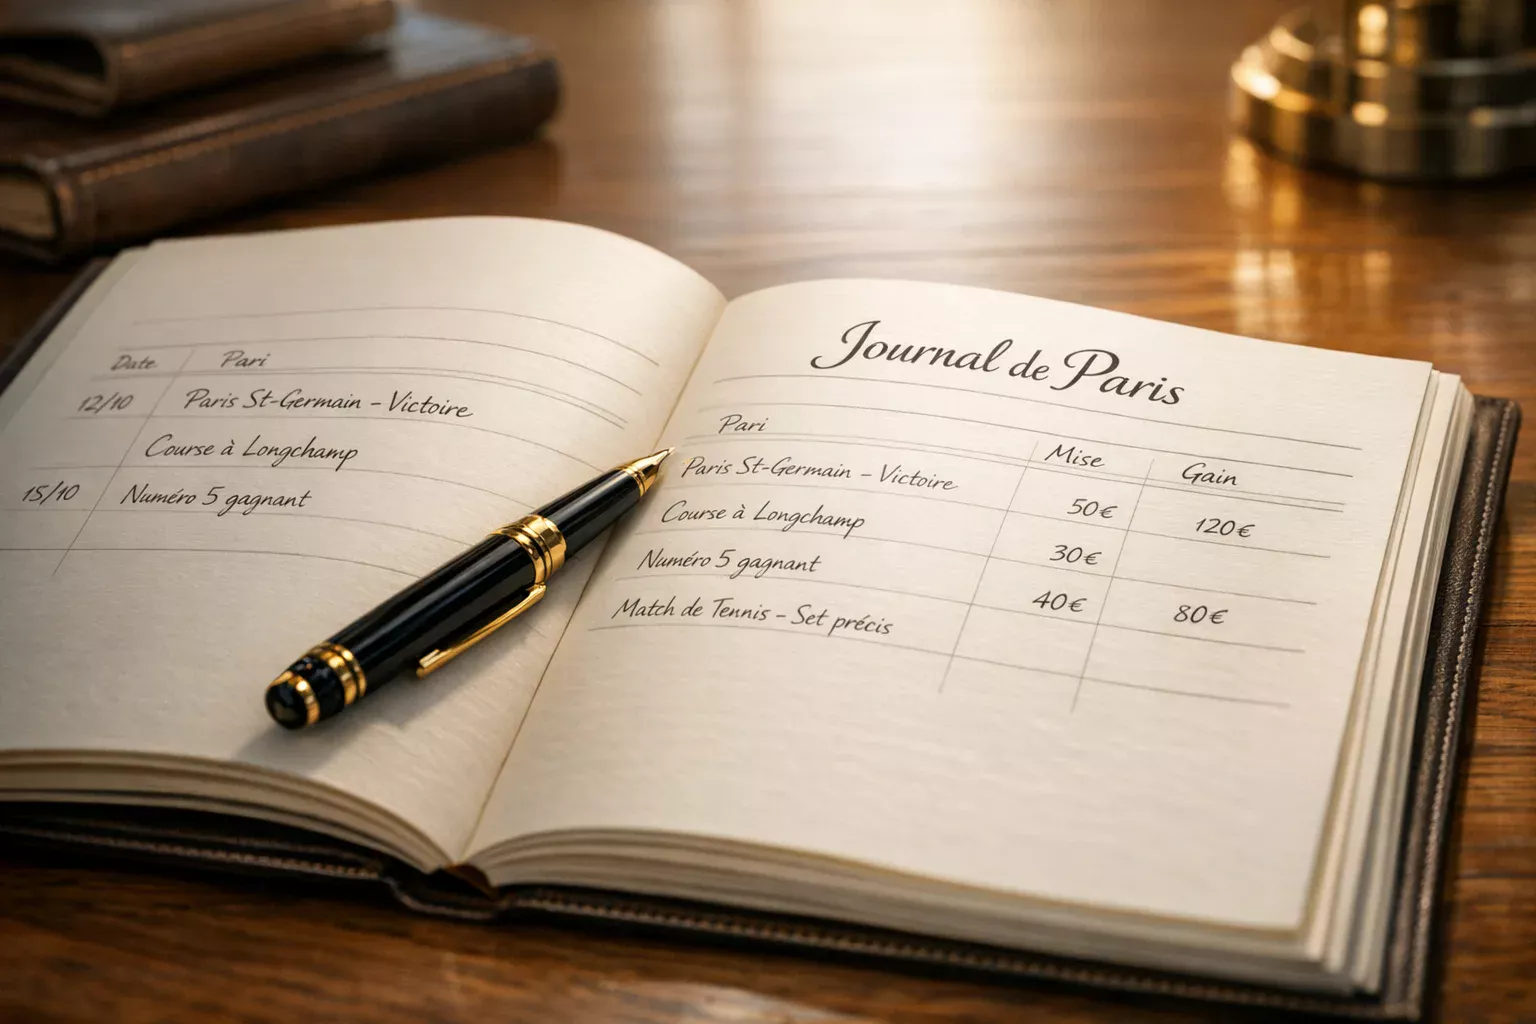 Date Pari
12/10 Paris St-Germain – Victoire
Course à Longchamp
15/10 Numéro 5 gagnant
Journal de Paris
Pari Mise Gain
Paris St-Germain – Victoire 50€ 120€
Course à Longchamp 30€
Numéro 5 gagnant 40€ 80€
Match de Tennis – Set précis